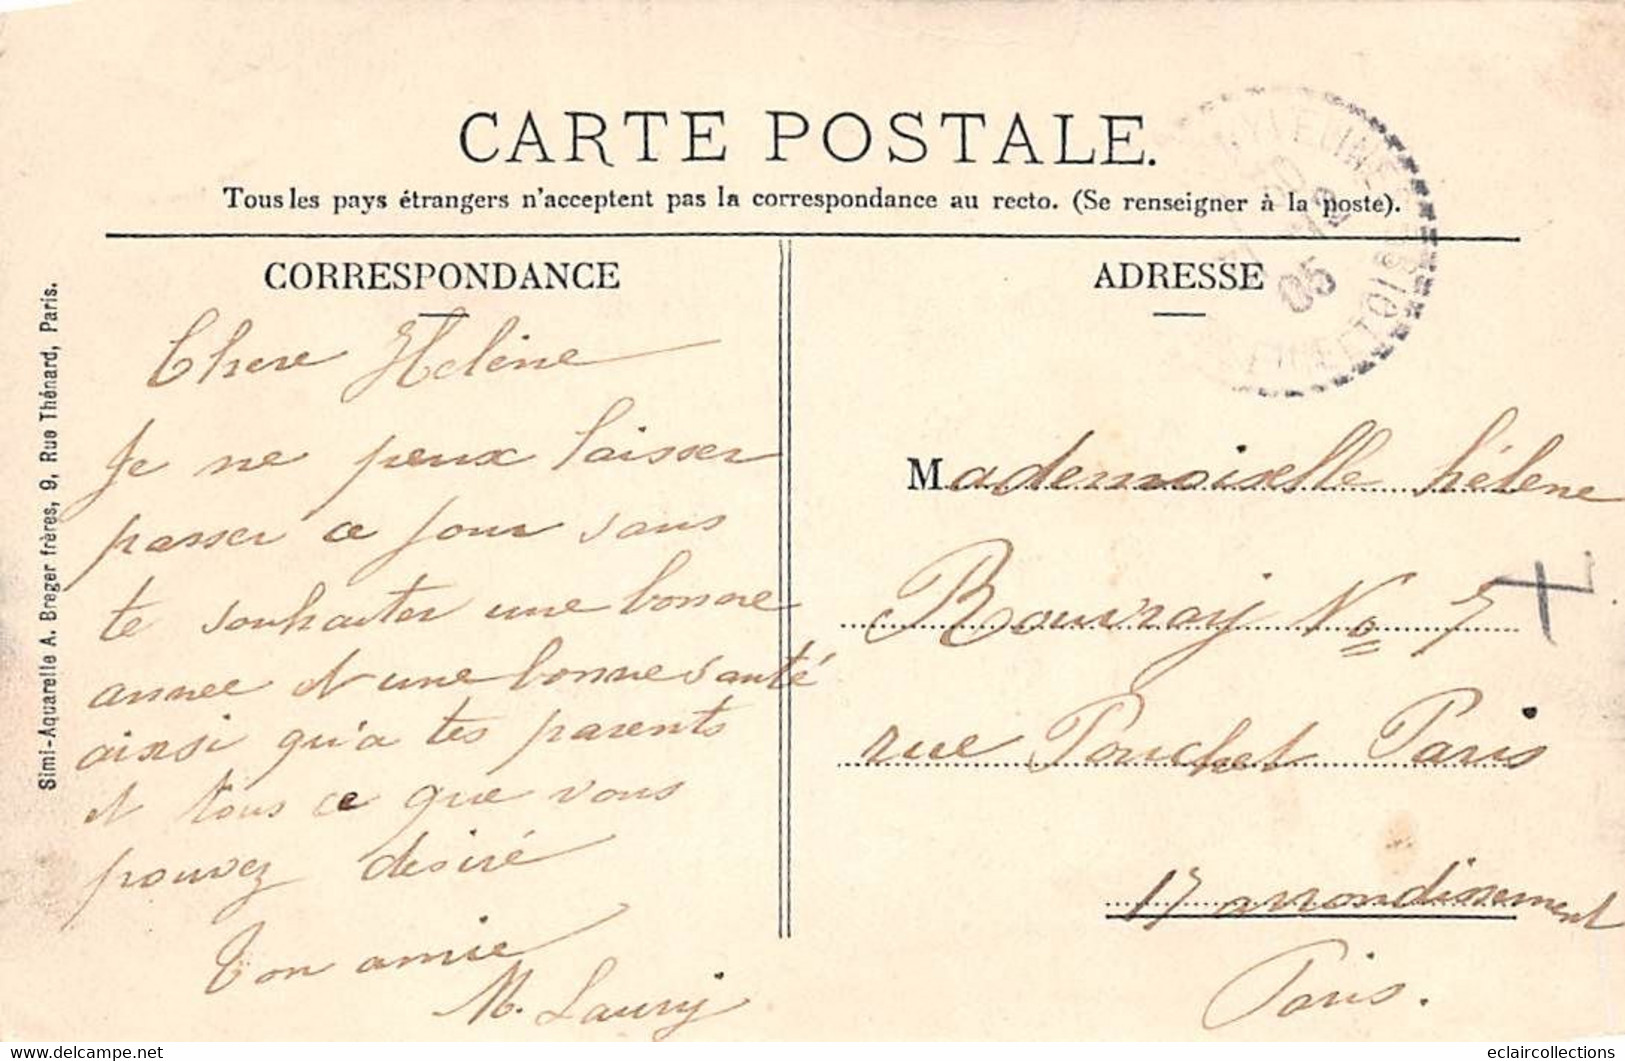 CARTE POSTALE.
Tous les pays étrangers n'acceptent pas la correspondance au recto. (Se renseigner à la poste).
CORRESPONDANCE
Chere Helène
Je ne peux laisser
passer ce jour sans
te souhaiter une bonne
annee et une bonne santé
ainsi qu'a tes parents
et tous ce que vous
pouvez desiré
Ton amie
M. Laury
ADRESSE
Mademoiselle hélene
Bouvray No 7
rue Pouchet Paris
17 arrondissement
Paris.
05
Simi-Aquarelle A. Breger frères, 9, Rue Thénard, Paris.
eclaircollections